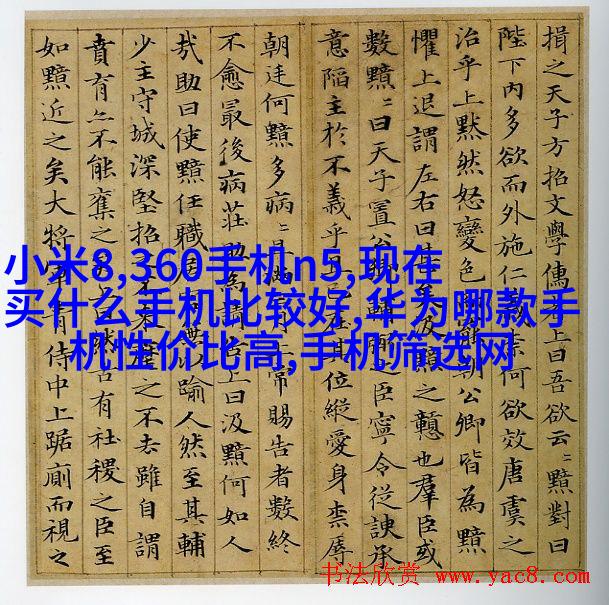 損之天子方招文學儒上曰吾欲云〻黯對曰
陛下內多欲而外施仁柰何欲效唐虞之
治乎上黙然怒變色罷朝公卿皆為黯
懼上退謂左右曰甚汲黯之戇也羣臣或
數黯〻曰天子置公輔之臣寧令從諛承
意陷主於不義乎且已在其位縱愛身柰辱
朝廷何黯多病〻且滿三常賜告者數終
不愈最後病莊助為請上曰汲黯何如人
㢤助曰使黯任職居以踰人然至其輔
少主守城深堅招之不来之不去雖自謂
賁育亦不能奪之曰然古有社稷之臣至
如黯近之矣大將軍青侍中上踞廁而視之
小米8,360手机n5,现在
买什么手机比较好,华为哪款手
机性价比高,手机筛选网
书法欣赏 www.yac8.com